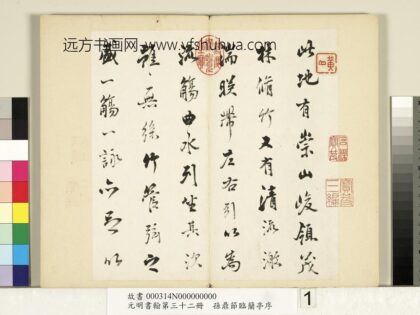 远方书画网 www.yfshuhua.com
此地有崇山峻領茂
林脩竹又有清流激
湍暎帶左右引以為
流觴曲水列坐其次
雖無絲竹管弦之
盛一觴一詠亦足以
故書 000314N000000000
元明書翰第三十二冊 孫鼎節臨蘭亭序
1